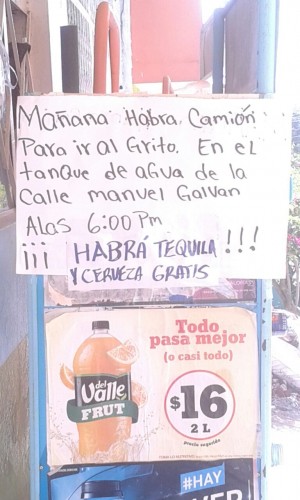 Mañana Habra. Camión
Para ir al Grito. En el
tanque de agua de la
Calle manuel Galvan
Alas 6:00 Pm
¡¡¡ HABRÁ TEQUILA !!!
Y CERVEZA GRATIS
Todo
pasa mejor
(o casi todo)
del
Valle
FRUT
$16
2 L
precio sugerido
#HAY